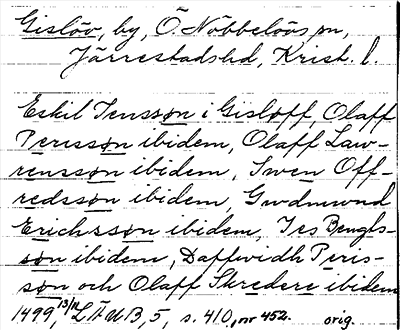 Gislöv, by, Ö. Nöbbelövs sn,
Järrestads hd, Krist. l.
Eskil Jensson i Gisloff, Olaff
Persson ibidem, Olaff Law-
rensson ibidem, Swen Off-
redsson ibidem, Gwdmwnd
Erichsson ibidem, Jes Bengts-
son ibidem, Daffwidh Peris-
son och Olaff Skredere ibidem
1499 13/11, LÄUB, 5, s. 410, nr 452. orig.